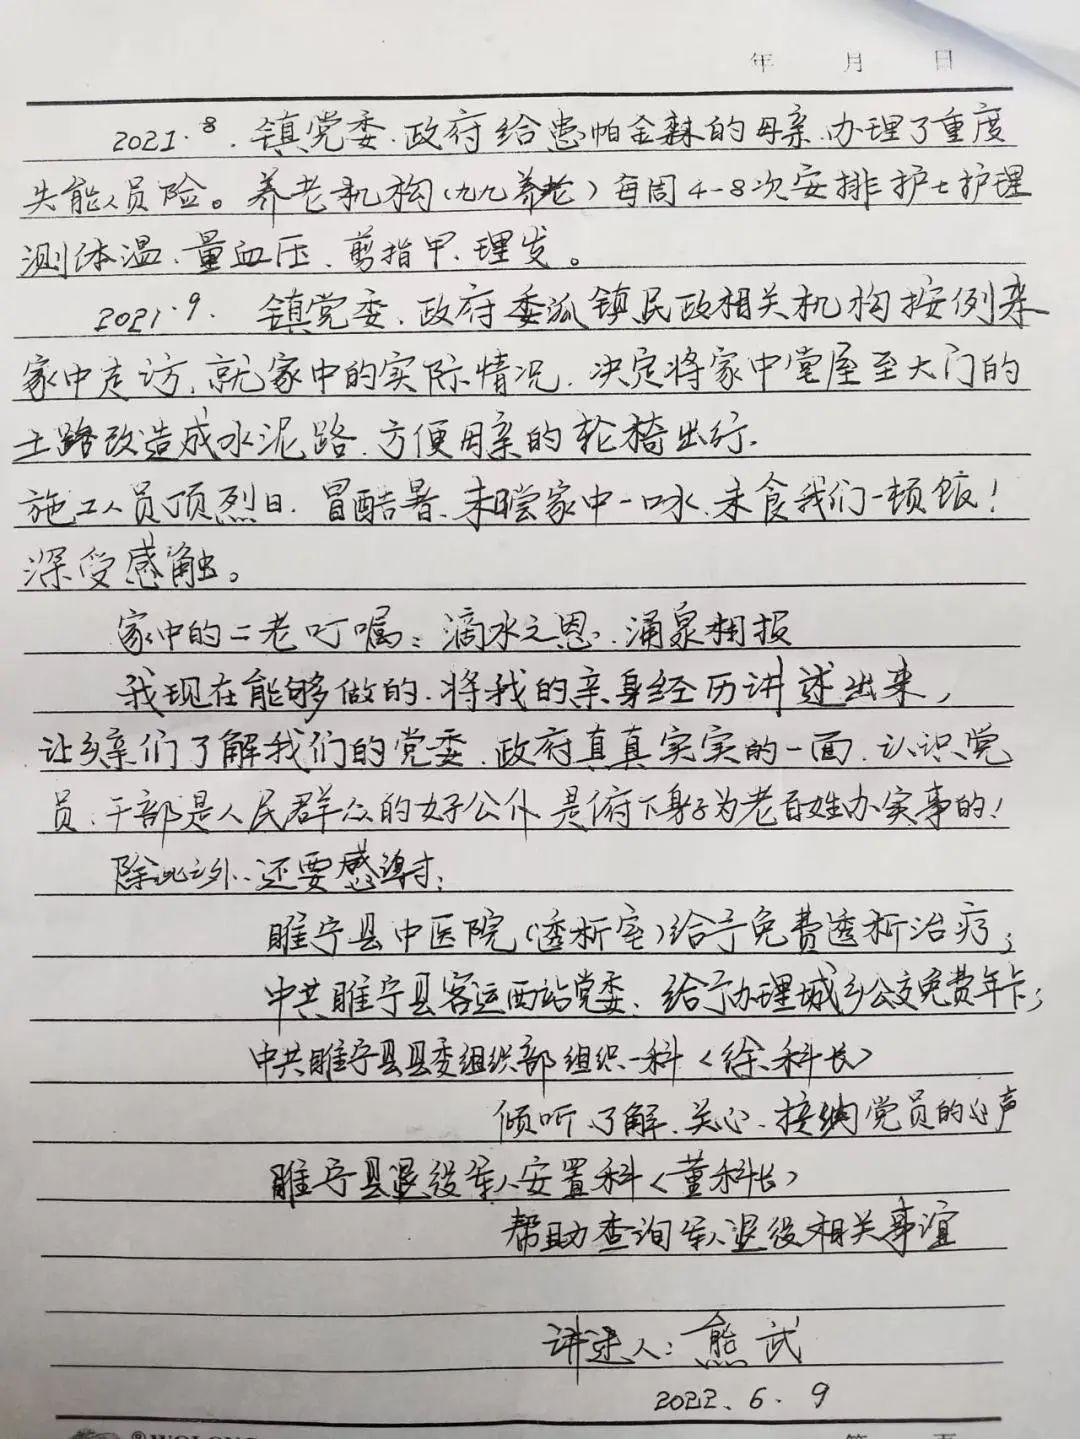 年 月 日
2021.8.镇党委、政府给患帕金森的母亲、办理了重度
失能人员险。养老机构(九九养老)每周4-8次安排护士护理
测体温、量血压、剪指甲、理发。
2021.9. 镇党委、政府委派镇民政相关机构按例来
家中走访、就家中的实际情况、决定将家中堂屋至大门的
土路改造成水泥路、方便母亲的轮椅出行、
施工人员顶烈日、冒酷暑、未嚐家中一口水、未食我们一顿饭!
深受感触。
家中的二老叮嘱:滴水之恩、涌泉相报
我现在能够做的、将我的亲身经历讲述出来,
让乡亲们了解我们的党委、政府真真实实的一面、认识党
员、干部是人民群众的好公仆 是俯下身子为老百姓办实事的!
除此之外、还要感谢:
睢宁县中医院(透析室)给予免费透析治疗;
中共睢宁县客运西站党委、给予办理城乡公交免费年卡;
中共睢宁县县委组织部组织一科<徐科长>
倾听、了解、关心、接纳党员的心声
睢宁县退役军人安置科<董科长>
帮助查询军人退役相关事谊
讲述人:熊武
2022.6.9